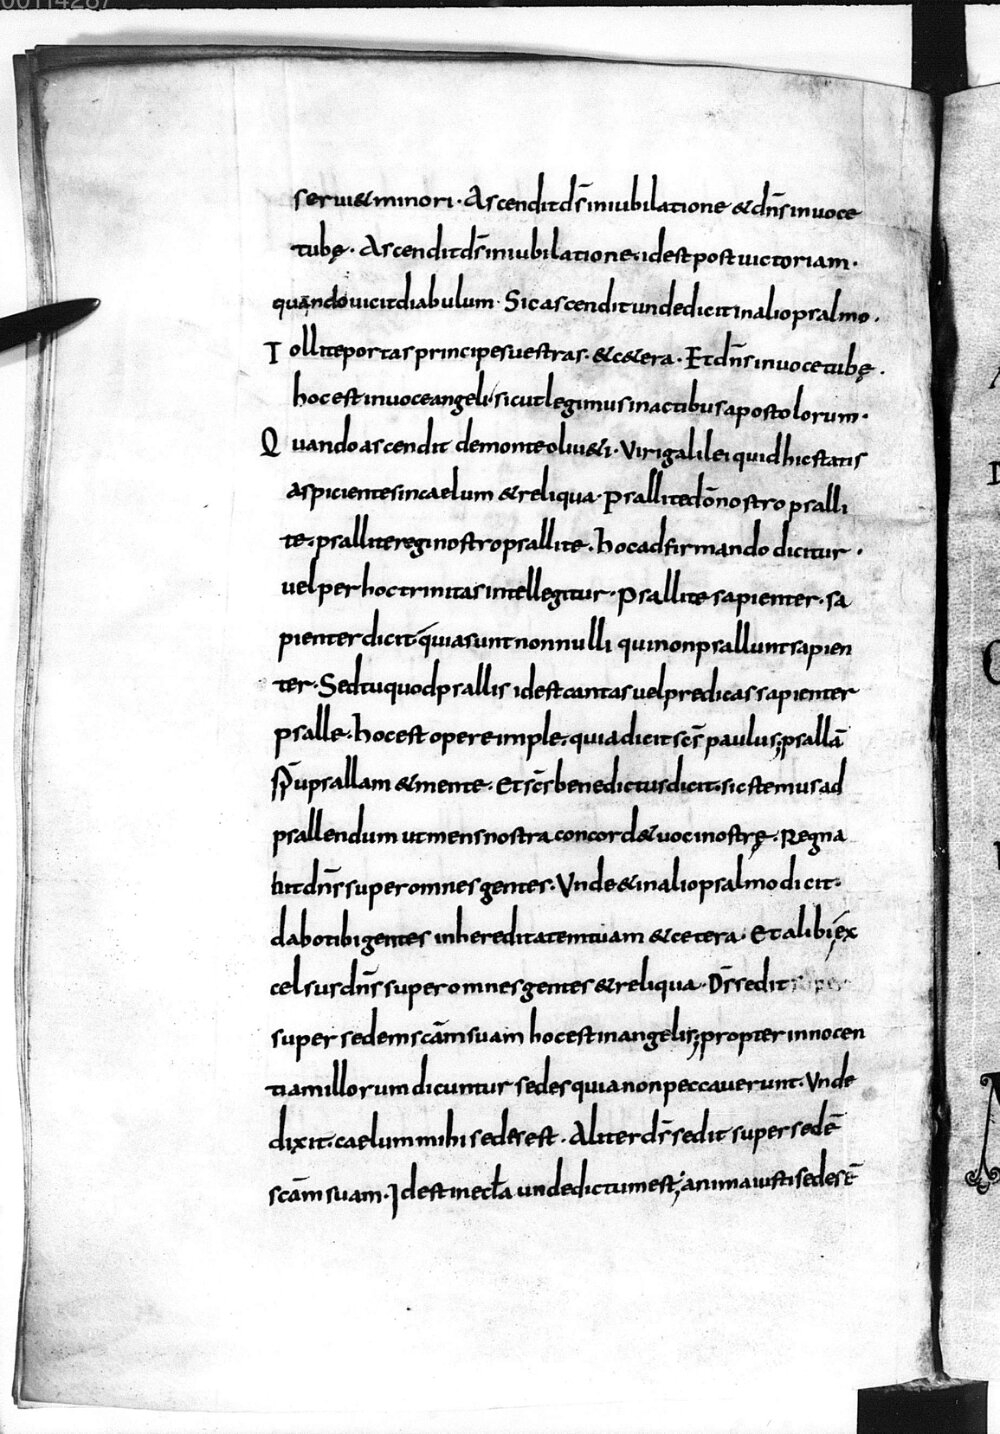 serui & minori · Ascendit ds̄ in iubilatione & dn̄s in uoce
tubę · Ascendit ds̄ in iubilatione · id est post uictoriam ·
quando uicit diabulum · Sic ascendit unde dicit in alio psalmo ·
Tollite portas principes uestras · & c&era · Et dn̄s in uoce tubę ·
hoc est in uoce angeli sicut legimus in actibus apostolorum ·
Quando ascendit de monte oliu&i · Viri galilei quid hic statis
aspicientes in caelum & reliqua · Psallite dō nostro psalli
te · psallite regi nostro psallite · hoc adfirmando dicitur ·
uel per hoc trinitas intellegitur · Psallite sapienter · sa
pienter dicit · quia sunt nonnulli qui non psallunt sapien
ter · Sed tu quod psallis id est cantas uel predicas sapienter
psalle · hoc est opere imple · quia dicit scs̄ paulus; psallā
sp̄u psallam & mente · Et scs̄ benedictus dicit · sic stemus ad
psallendum ut mens nostra concord& uoci nostrę · Regna
bit dn̄s super omnes gentes · Vnde & in alio psalmo dicit ·
dabo tibi gentes in hereditatem tuam & cetera · Et alibi; ex
celsus dn̄s super omnes gentes & reliqua · Ds̄ sedit super
super sedem scām suam hoc est in angelis; propter innocen
tiam illorum dicuntur sedes quia non peccauerunt · Vnde
dixit · caelum mihi sedes est · Aliter ds̄ sedit super sedē
scām suam · Id est in eccła unde dictum est; anima iusti sedes ē